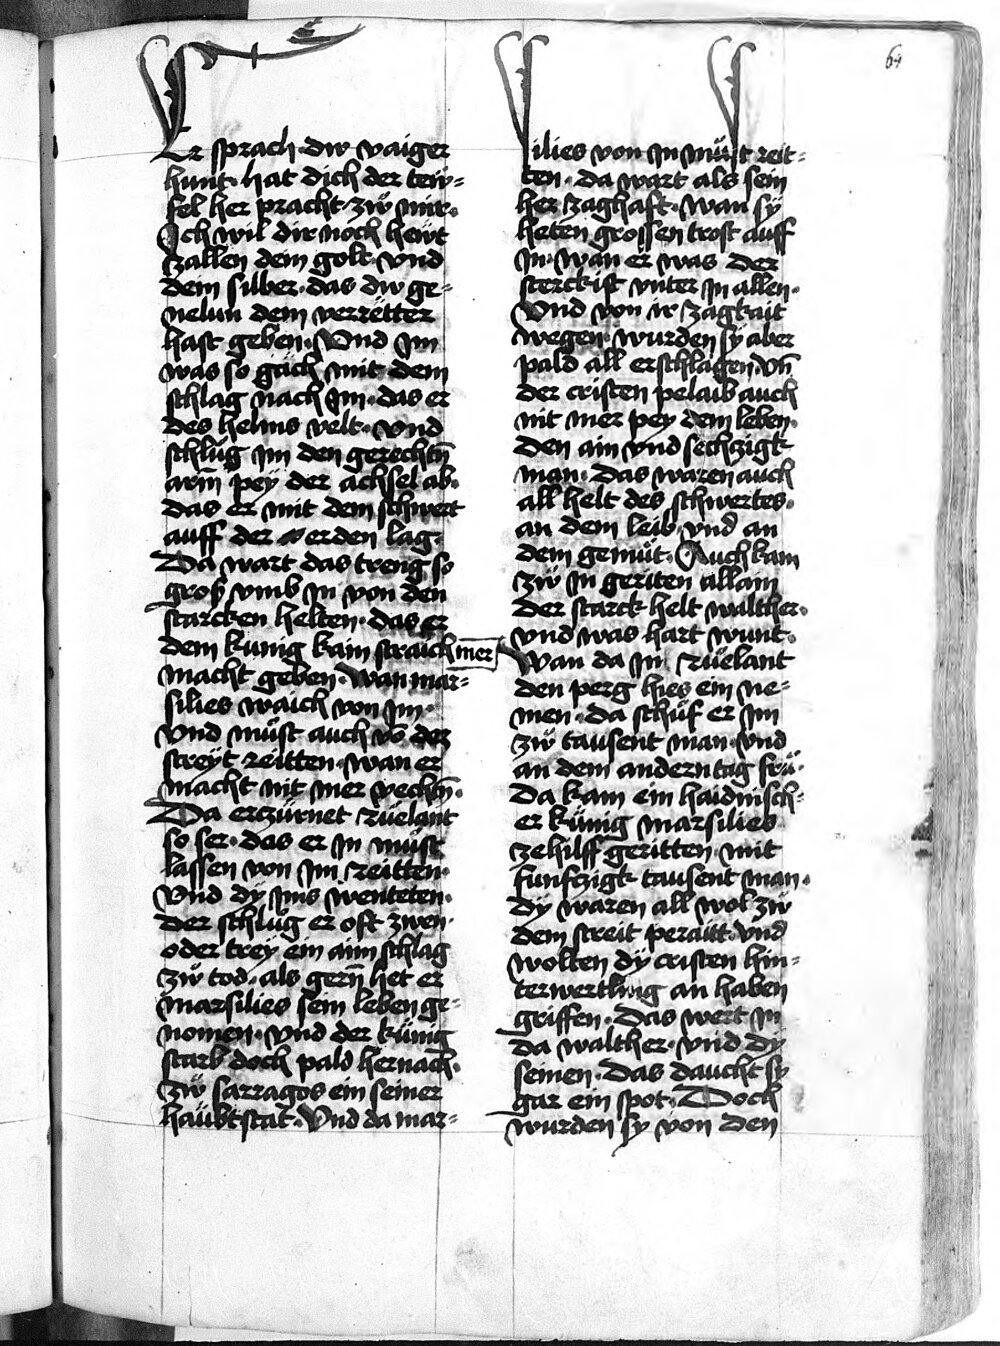 64
Er sprach· dw vaiger
hunt· hat dich der tew=
fel her pracht zẅ mir·
Ich wil dir noch hewt
zallen dem golt· vnd
dem silber· das dw ge=
nelun dem verretter
hast geben· Vnd im
was so gäch mit dem
schlag nach im· das er
des helms velt· vnd
schlůg im den gerechtn̄
arm̄ pey der achsel ab·
das er mit dem schwert
auff der erden lag·
Da wart das treng so
groß vmb in von den
starcken helten· das er
dem kunig kain straich mer
macht geben· Wan mar=
silies waich von im·
Vnd můst auch vō der
streyt reitten· wan er
macht nit mer vechtn̄·
Da erzürnet rüelant
so ser· das er in můst
lassen von im reitten·
Vnd dy ims wenteten·
der schlůg er oft zwen·
oder trey ein aim schlag
zẅ tod· als gern̄ het er
Marsilies sein leben ge=
nomen· vnd der künig
starb doch pald hernach·
zẅ sarragos ein seiner
haübtstat· Vnd da mar=
silies von in můst reit=
ten· da wart als sein
her zaghaft· wan sy
heten grossen trost auff
in· wan er was der
sterckist vnter in allen·
Vnd von ir zagkait
wegen· wurden sy aber
pald all erschlagen· Vn̄
der cristen pelaib auch
nit mer pey dem leben·
den ain vnd sechzigk
man· das waren auch
all helt des schwertes·
an dem leib vnd an
dem gemüt· Auch kam
zẅ in geriten allain
der starck helt walther·
vnd was hart wunt·
Wan da im rüelant
den perg hies ein ne=
men· da schůf er im
zẅ tausent man· vnd
an dem andern tag frů·
Da kam ein haidnisch=
er künig marsilies
zehilff geritten mit
funfczigk tausent man·
dy waren all wol zẅ
dem streit peraitt· vnd
wolten dy cristen hin=
terwertling an haben
griffen· das wert in
da walther· vnd dy
seinen· das daucht sy
gar ein spot· Doch
wurden sy von den